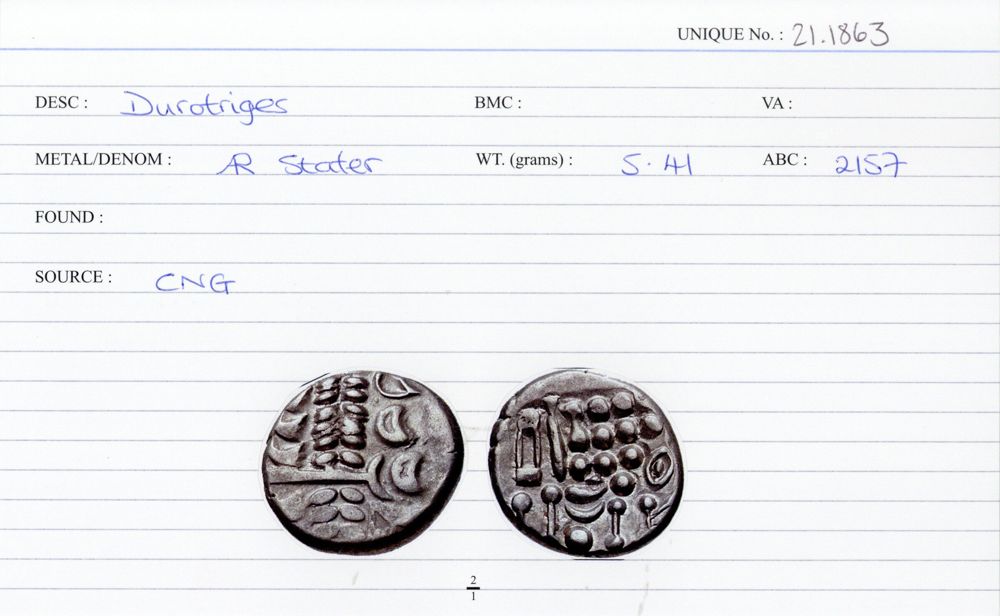 UNIQUE No. : 21.1863
DESC : Durotriges BMC : VA :
METAL/DENOM : AR Stater WT. (grams) : 5.41 ABC : 2157
FOUND :
SOURCE : CNG
2
1